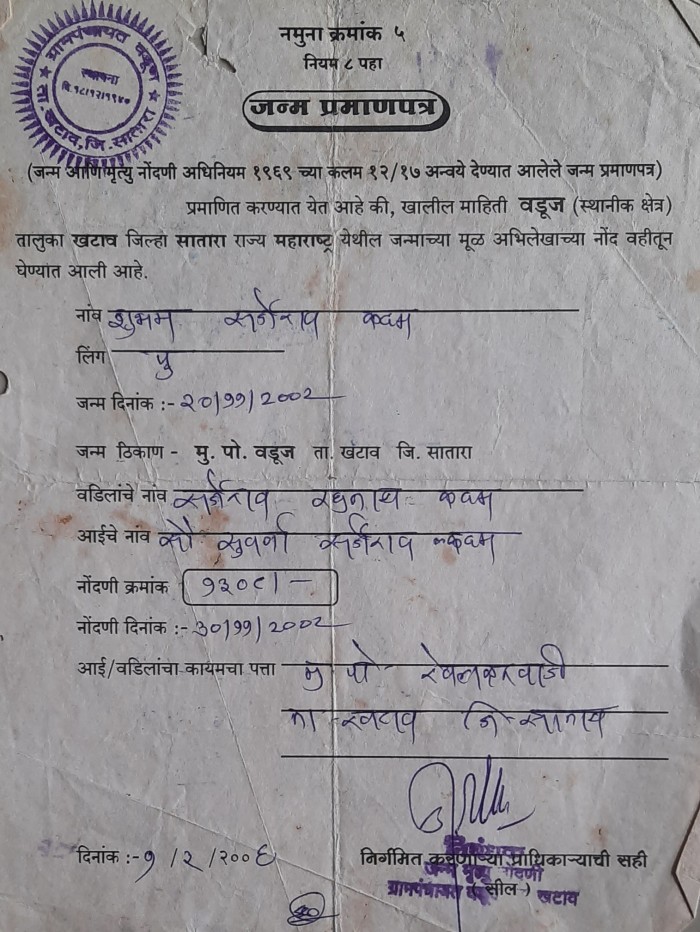 ग्रामपंचायत वडूज
स्थापना
दि.१८/१२/१९४०
ता. खटाव, जि. सातारा
नमुना क्रमांक ५
नियम ८ पहा
जन्म प्रमाणपत्र
(जन्म आणि मृत्यु नोंदणी अधिनियम १९६९ च्या कलम १२/१७ अन्वये देण्यात आलेले जन्म प्रमाणपत्र)
प्रमाणित करण्यात येत आहे की, खालील माहिती वडूज (स्थानीक क्षेत्र)
तालुका खटाव जिल्हा सातारा राज्य महाराष्ट्र येथील जन्माच्या मूळ अभिलेखाच्या नोंद वहीतून
घेण्यात आली आहे.
नांव शुभम सर्जेराव कदम
लिंग पु
जन्म दिनांक :- २०/११/२००२
जन्म ठिकाण - मु. पो. वडूज ता. खटाव जि. सातारा
वडिलांचे नांव सर्जेराव रघुनाथ कदम
आईचे नांव सौ सुवर्णा सर्जेराव कदम
नोंदणी क्रमांक १३०९/-
नोंदणी दिनांक :- ३०/११/२००२
आई/वडिलांचा कायमचा पत्ता मु पो
ता खटाव जि सातारा
दिनांक :- १/२/२००६
निर्गमित करणाऱ्या प्राधिकाऱ्याची सही
जन्म मृत्यु नोंदणी
(सील)
ग्रामपंचायत वडूज खटाव